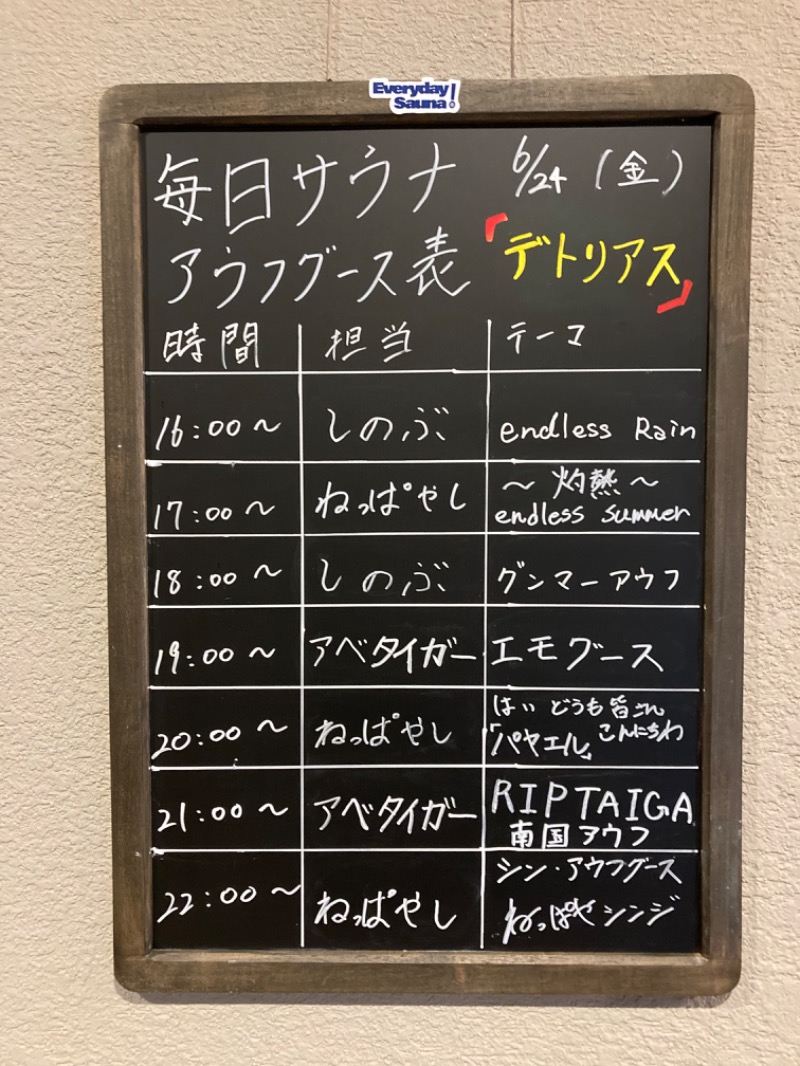 Everyday
Sauna!
毎日サウナ 6/24 (金)
アウフグース表 「デトリアス」
時間 担当 テーマ
16:00〜 しのぶ endless Rain
17:00〜 ねっぱやし 〜灼熱〜
endless summer
18:00〜 しのぶ グンマーアウフ
19:00〜 アベタイガー エモグース
20:00〜 ねっぱやし はいどうも皆さん
「パヤエル」こんにちわ
21:00〜 アベタイガー RIPTAIGA
南国アウフ
22:00〜 ねっぱやし シン・アウフグース
ねっぱやシンジ